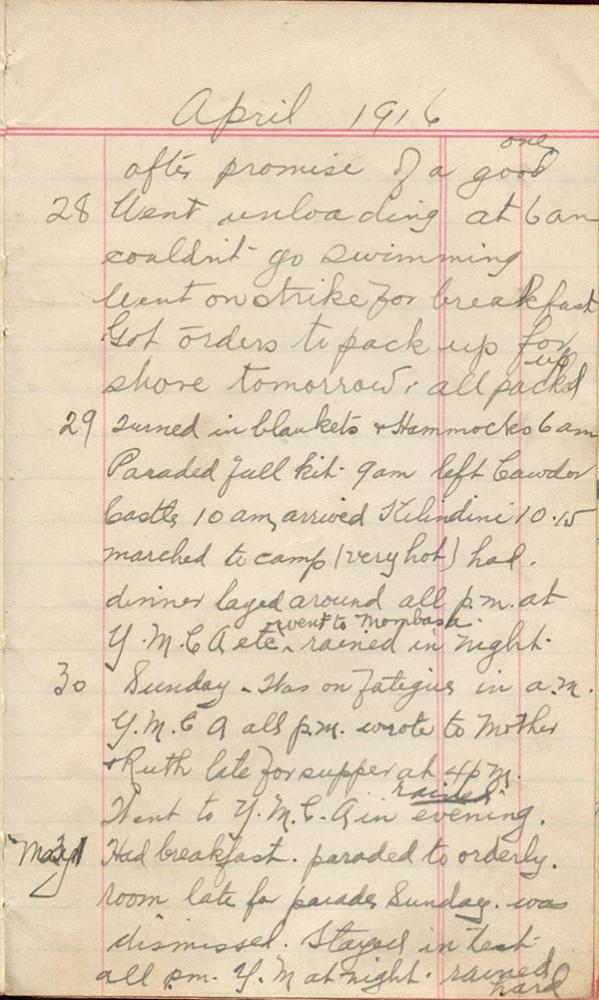 April 1916
after promise of a good one
28 Went unloading at 6 am
couldn't go swimming
went on strike for breakfast
Got orders to pack up for
shore tomorrow. all packed up
29 Turned in blankets & Hammocks 6 am
Paraded full kit. 9am left Cawdor
Castle 10 am, arrived Kilindini 10.15
marched to camp (very hot) had.
dinner layed around all p.m. at
Y.M.C.A etc. went to Mombasa. rained in night.
30 Sunday - Was on fatigue in a.m.
Y.M.C A all p.m. wrote to Mother
& Ruth late for supper at 4 p.m.
Went to Y.M.C.A in evening. rained
May 1 Had breakfast. paraded to orderly.
room late for parade Sunday. was
dismissed. Stayed in tent
all pm. Y.M at night. rained hard